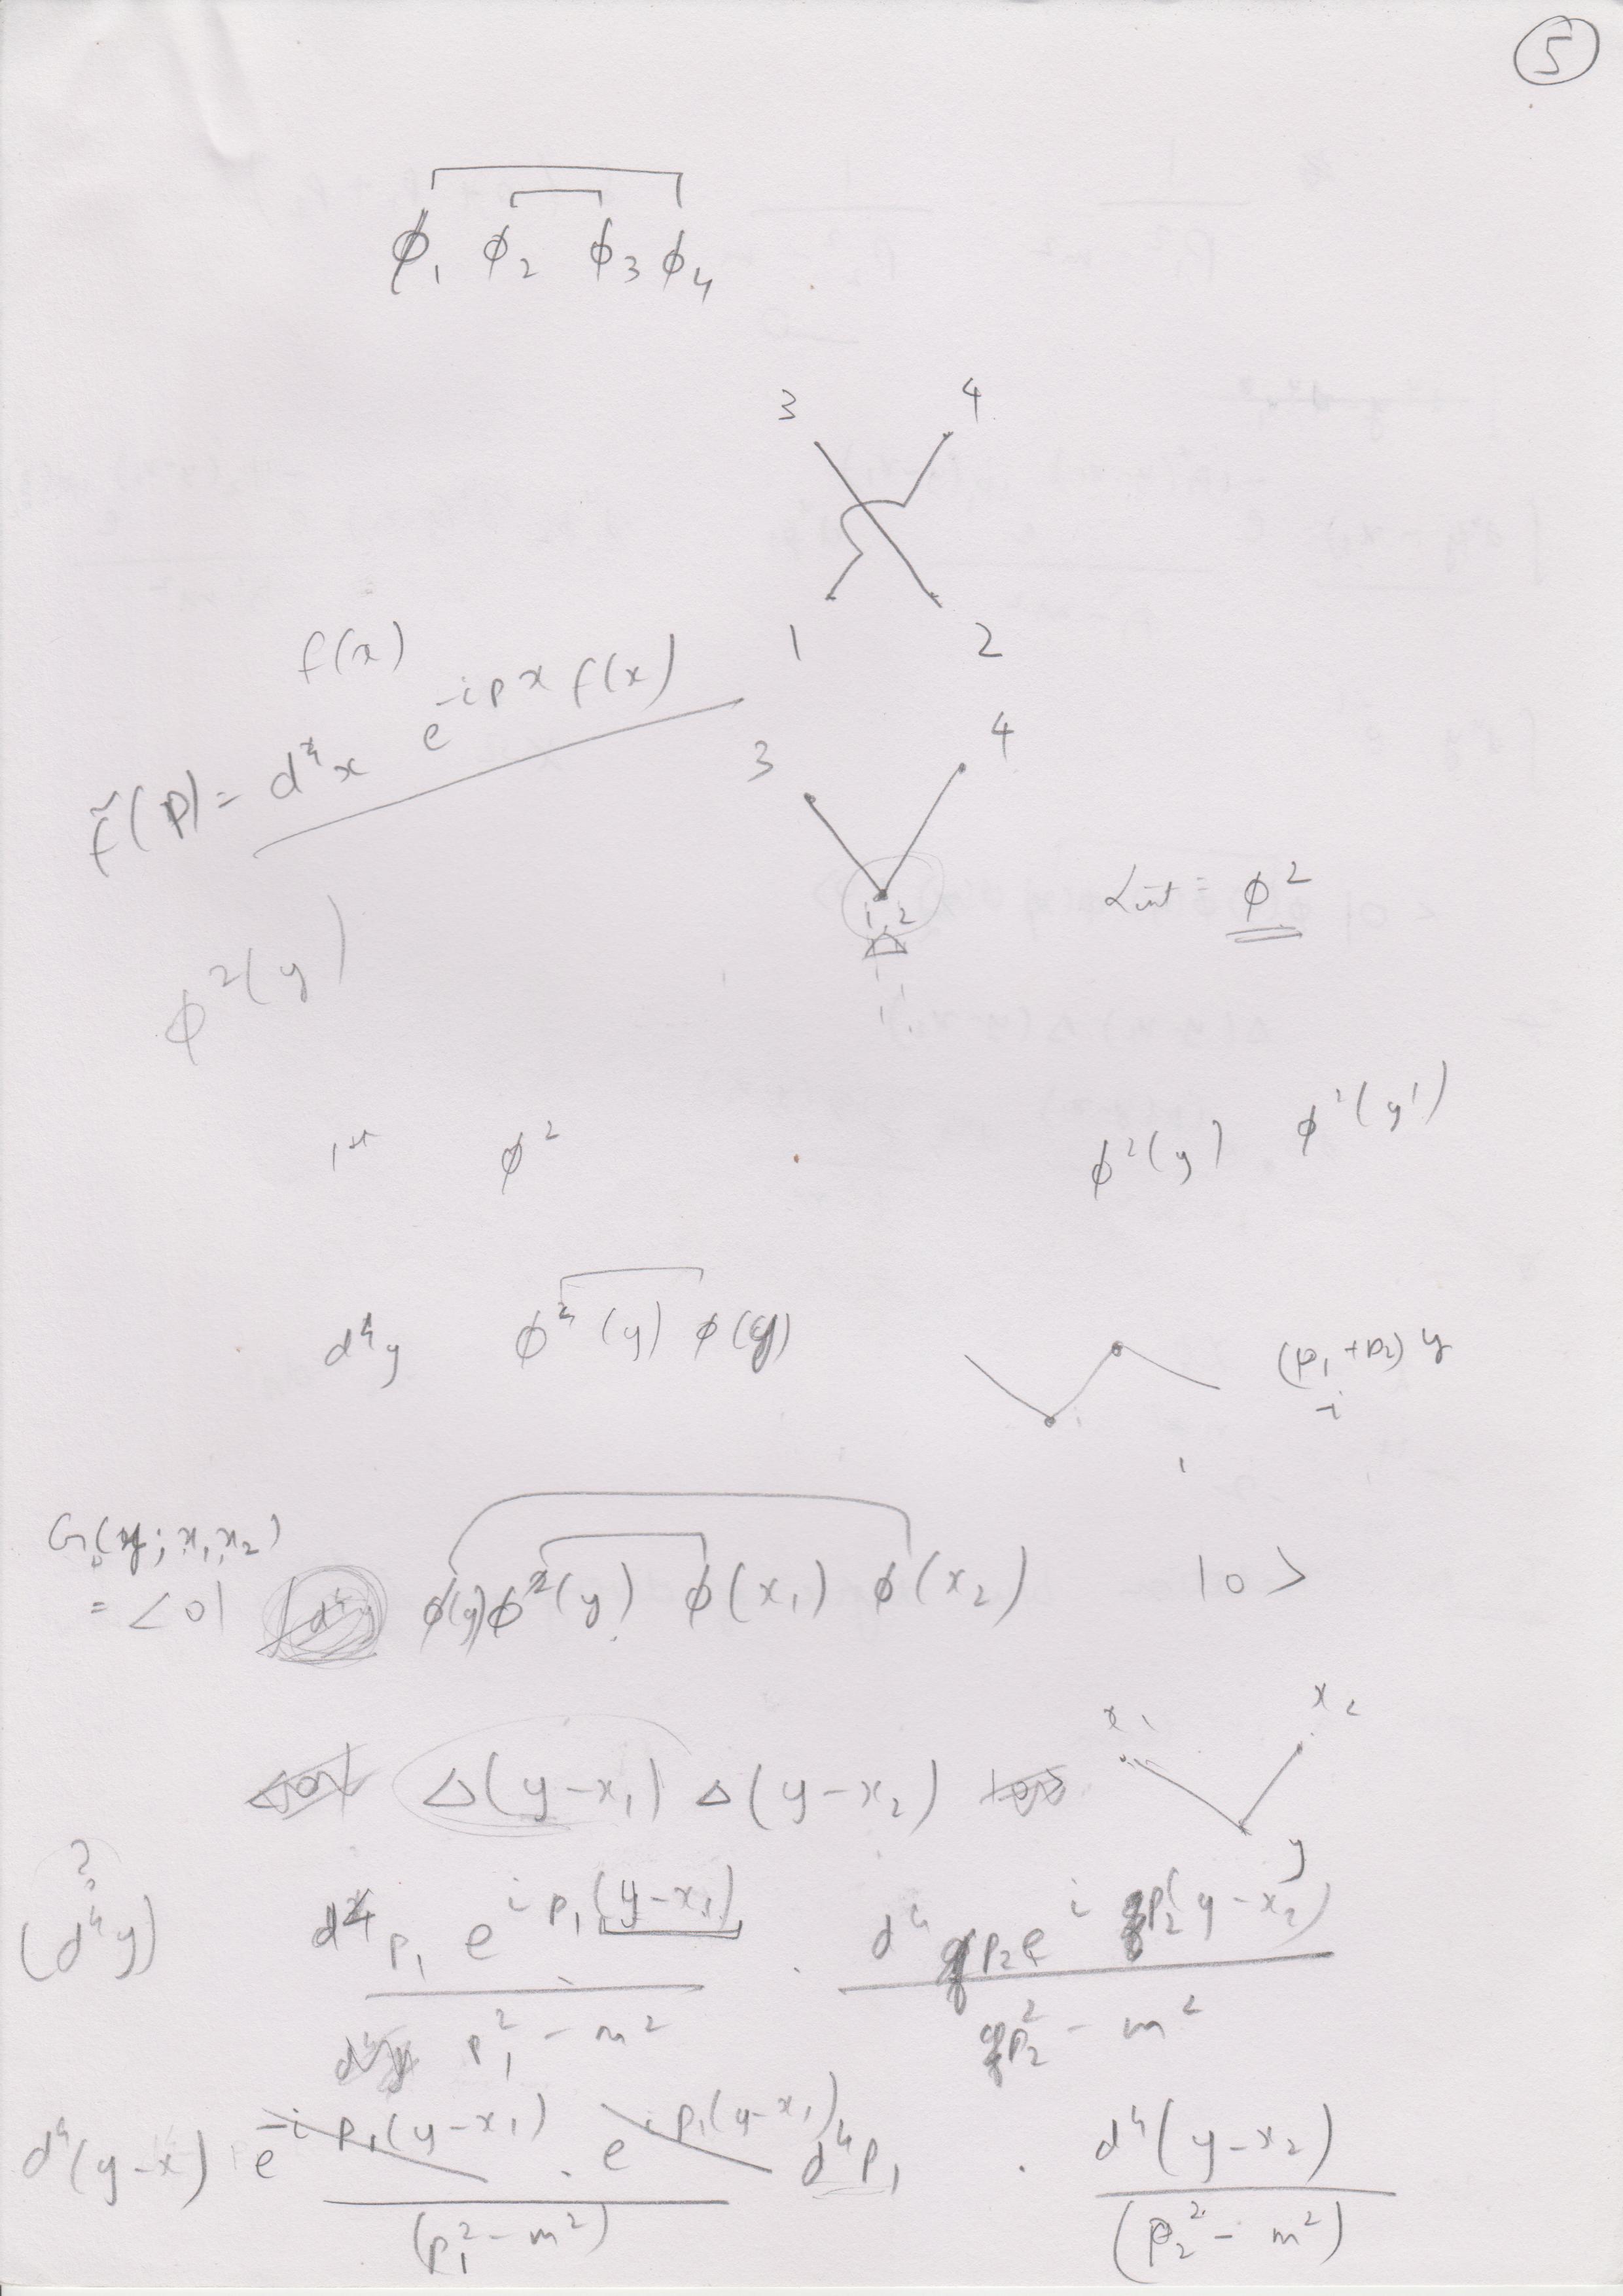 5
ϕ₁ ϕ₂ ϕ₃ ϕ₄
3 4
1 2
f(x)
f̃(p) = d⁴x e^{-ipx} f(x)
3 4
1,2
Lint = ϕ²
ϕ²(y)
1st ϕ² ϕ²(y) ϕ²(y')
d⁴y ϕ²(y) ϕ(y) (p₁+p₂)y
i
G(y; x₁, x₂)
= <0| ϕ(y) ϕ(y) ϕ(x₁) ϕ(x₂) |0>
x₁ x₂
Δ(y-x₁) Δ(y-x₂)
y
?
(d⁴y) d⁴p₁ e^{ip₁(y-x₁)} . d⁴p₂ e^{ip₂(y-x₂)}
p₁² - m² p₂² - m²
d⁴(y-x) e^{-ip₁(y-x₁)} . e^{ip₁(y-x₁)} d⁴p₁ . d⁴(y-x₂)
(p₁² - m²) (p₂² - m²)